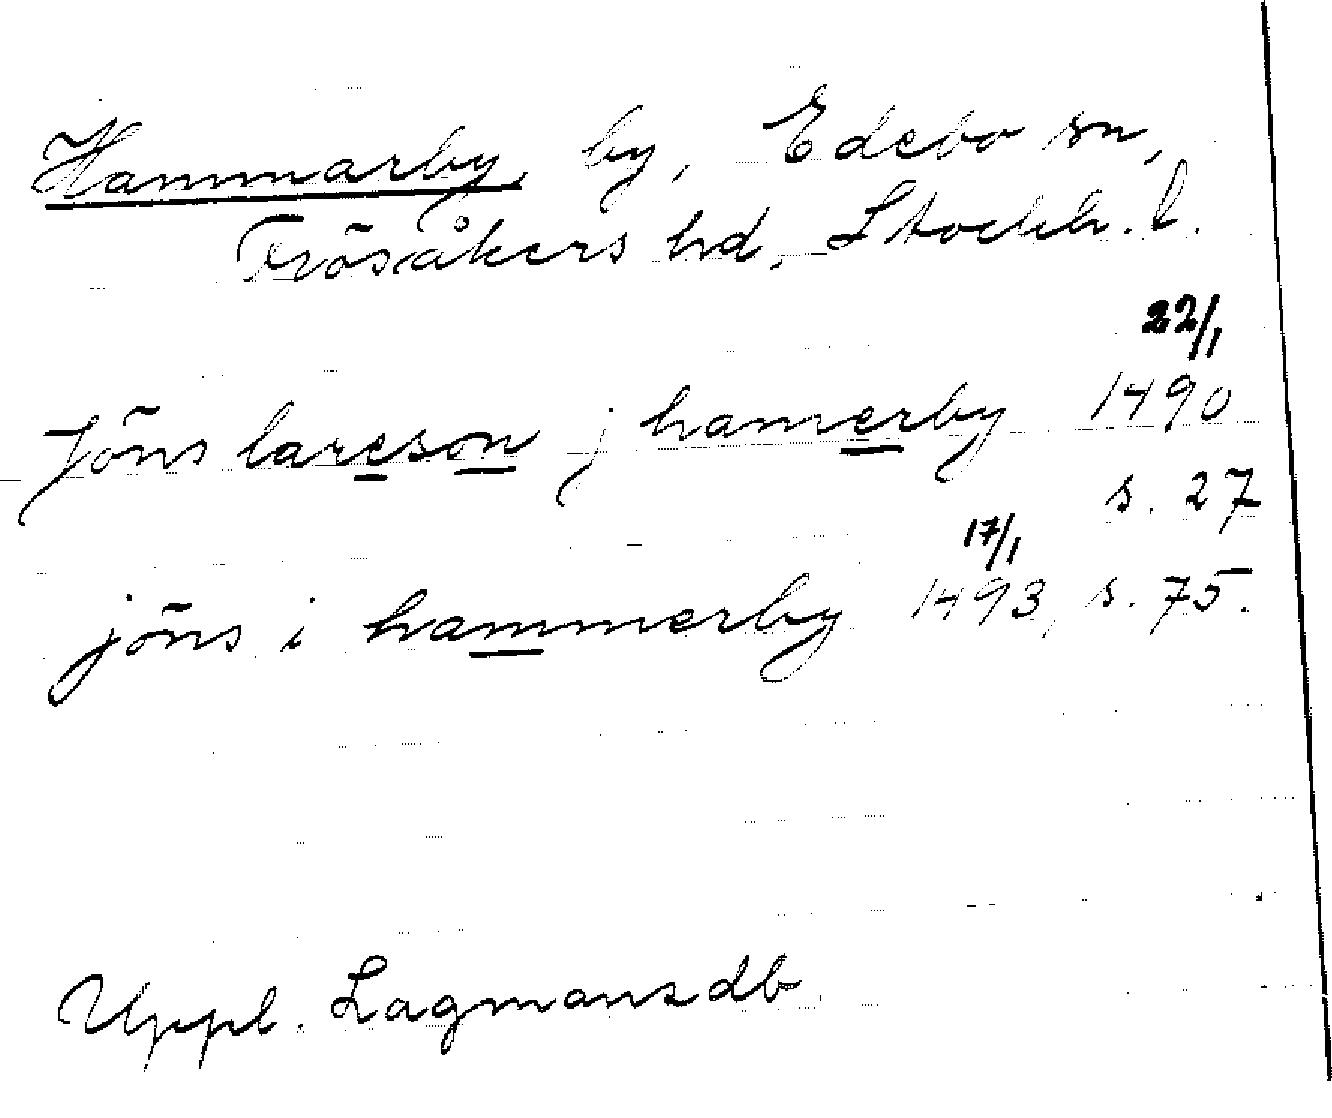 Hammarby, by, Edebo sn,
Frösåkers hd, Stockh. l.
22/1
Jöns larsson j hamerby 1490
s. 27
17/1
jöns i hammerby 1493, s. 75.
Uppl. Lagmansdb